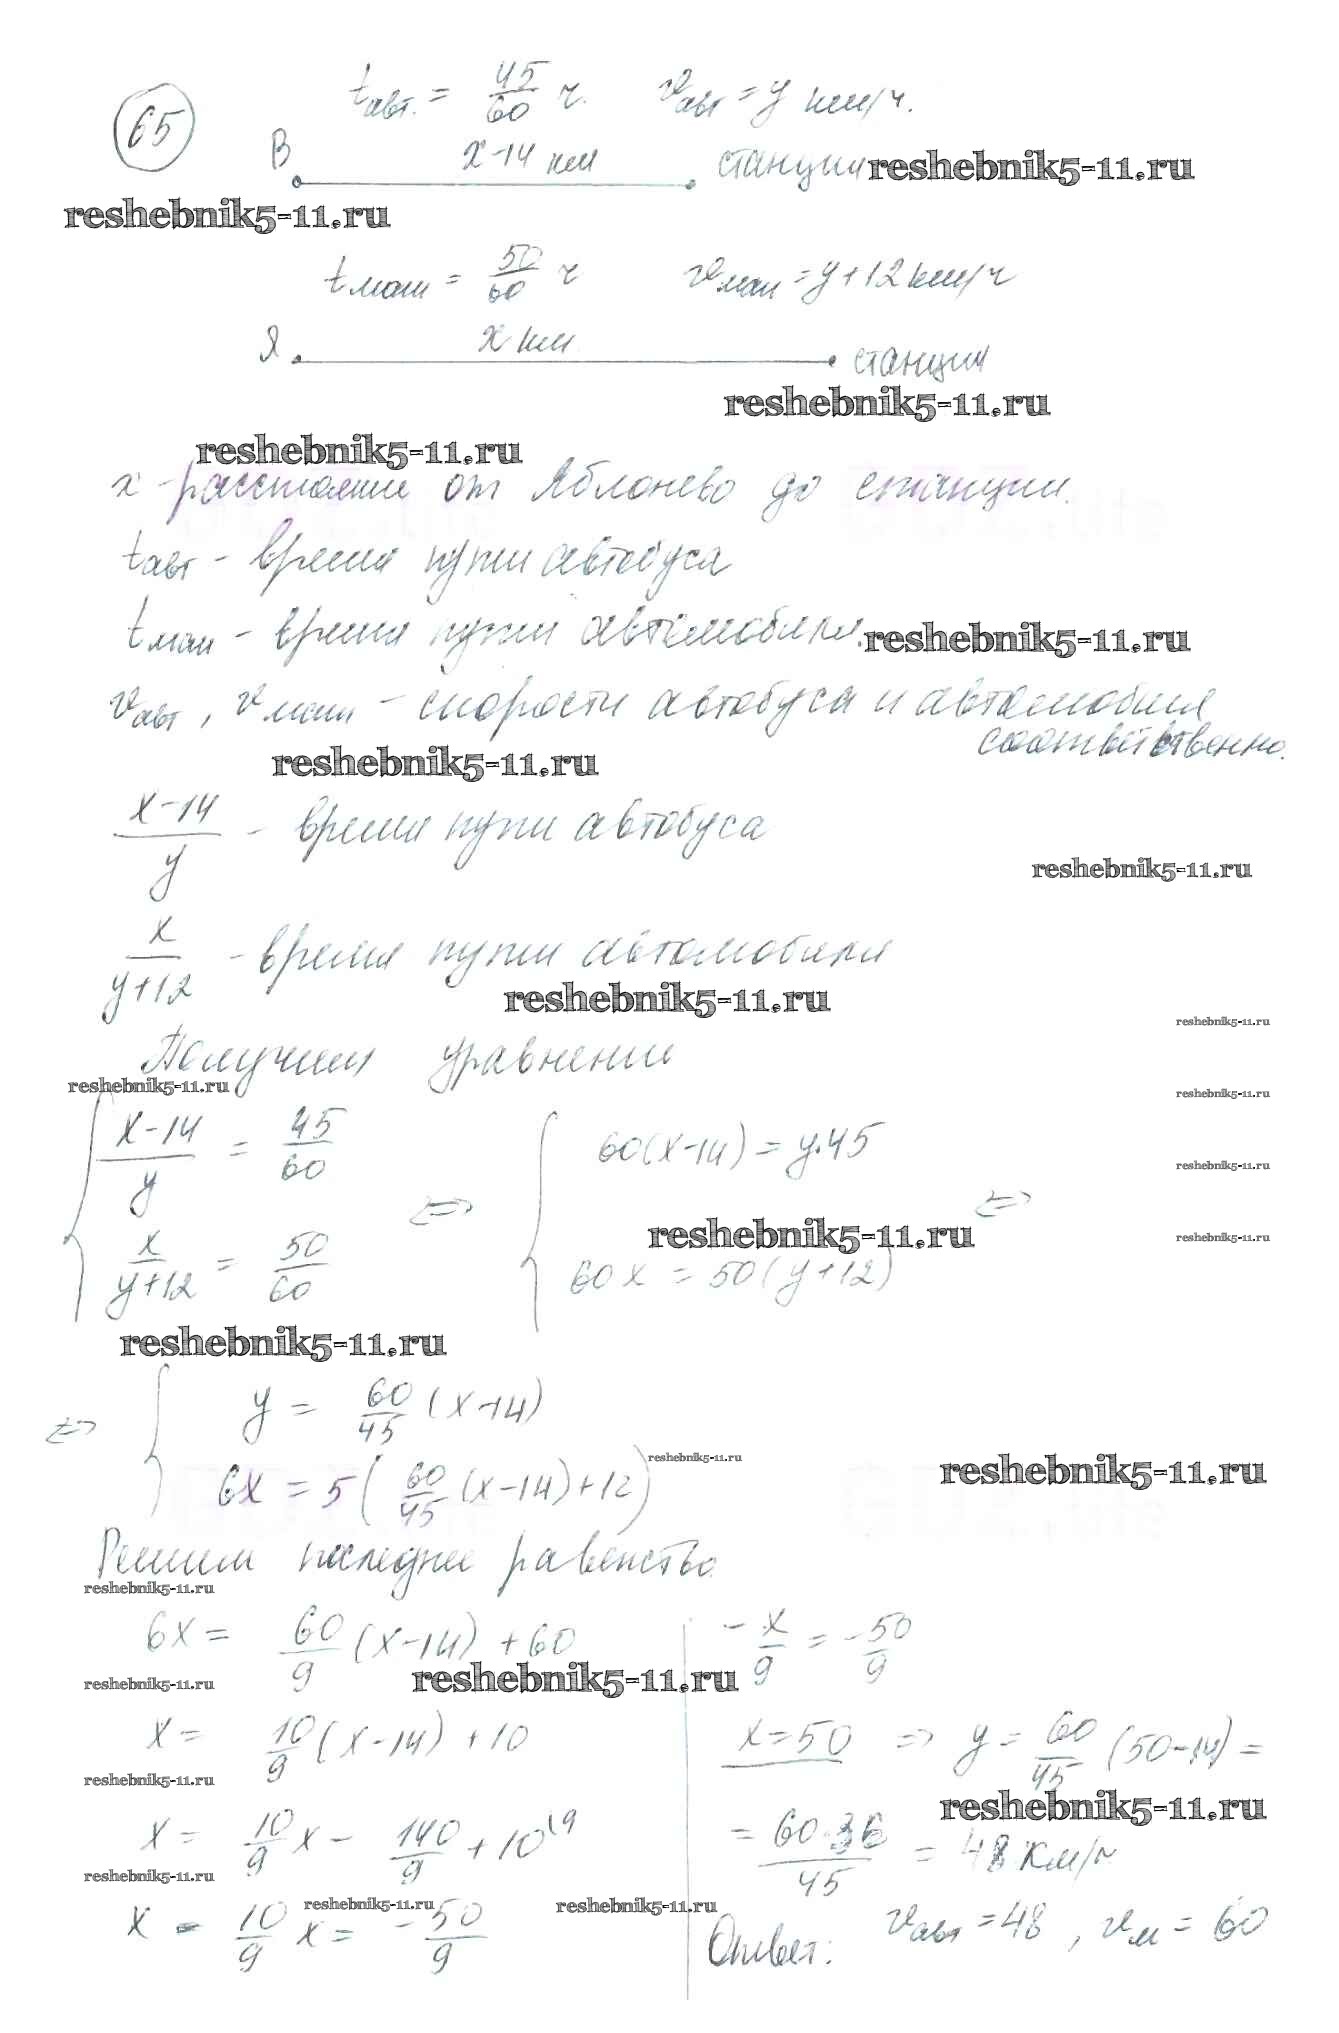 65
tавт. = 45/60 ч. vавт = y км/ч.
B x-14 км станция reshebnik5-11.ru
reshebnik5-11.ru
tмаш = 50/60 ч vмаш = y+12 км/ч
Я x км станция
reshebnik5-11.ru
reshebnik5-11.ru
x - расстояние от Яблонево до станции.
tавт - время пути автобуса
tмаш - время пути автомобиля. reshebnik5-11.ru
vавт, vмаш - скорости автобуса и автомобиля
соответственно.
reshebnik5-11.ru
x-14/y - время пути автобуса
reshebnik5-11.ru
x/y+12 - время пути автомобиля
reshebnik5-11.ru
reshebnik5-11.ru
Получим уравнения
reshebnik5-11.ru
reshebnik5-11.ru
{ x-14/y = 45/60 ⇔ { 60(x-14) = y·45 ⇔
reshebnik5-11.ru
reshebnik5-11.ru reshebnik5-11.ru
x/y+12 = 50/60 60x = 50(y+12)
reshebnik5-11.ru
⇔ { y = 60/45 (x-14)
reshebnik5-11.ru reshebnik5-11.ru
6x = 5(60/45 (x-14)+12)
Решим последнее равенство.
reshebnik5-11.ru
6x = 60/9 (x-14) + 60
reshebnik5-11.ru reshebnik5-11.ru
x = 10/9 (x-14) + 10
reshebnik5-11.ru
x = 10/9 x - 140/9 + 10 \9
reshebnik5-11.ru
reshebnik5-11.ru reshebnik5-11.ru
x - 10/9 x = -50/9
-x/9 = -50/9
x = 50 ⇒ y = 60/45 (50-14) =
reshebnik5-11.ru
= 60·36/45 = 48 км/ч
Ответ: vавт = 48, vм = 60